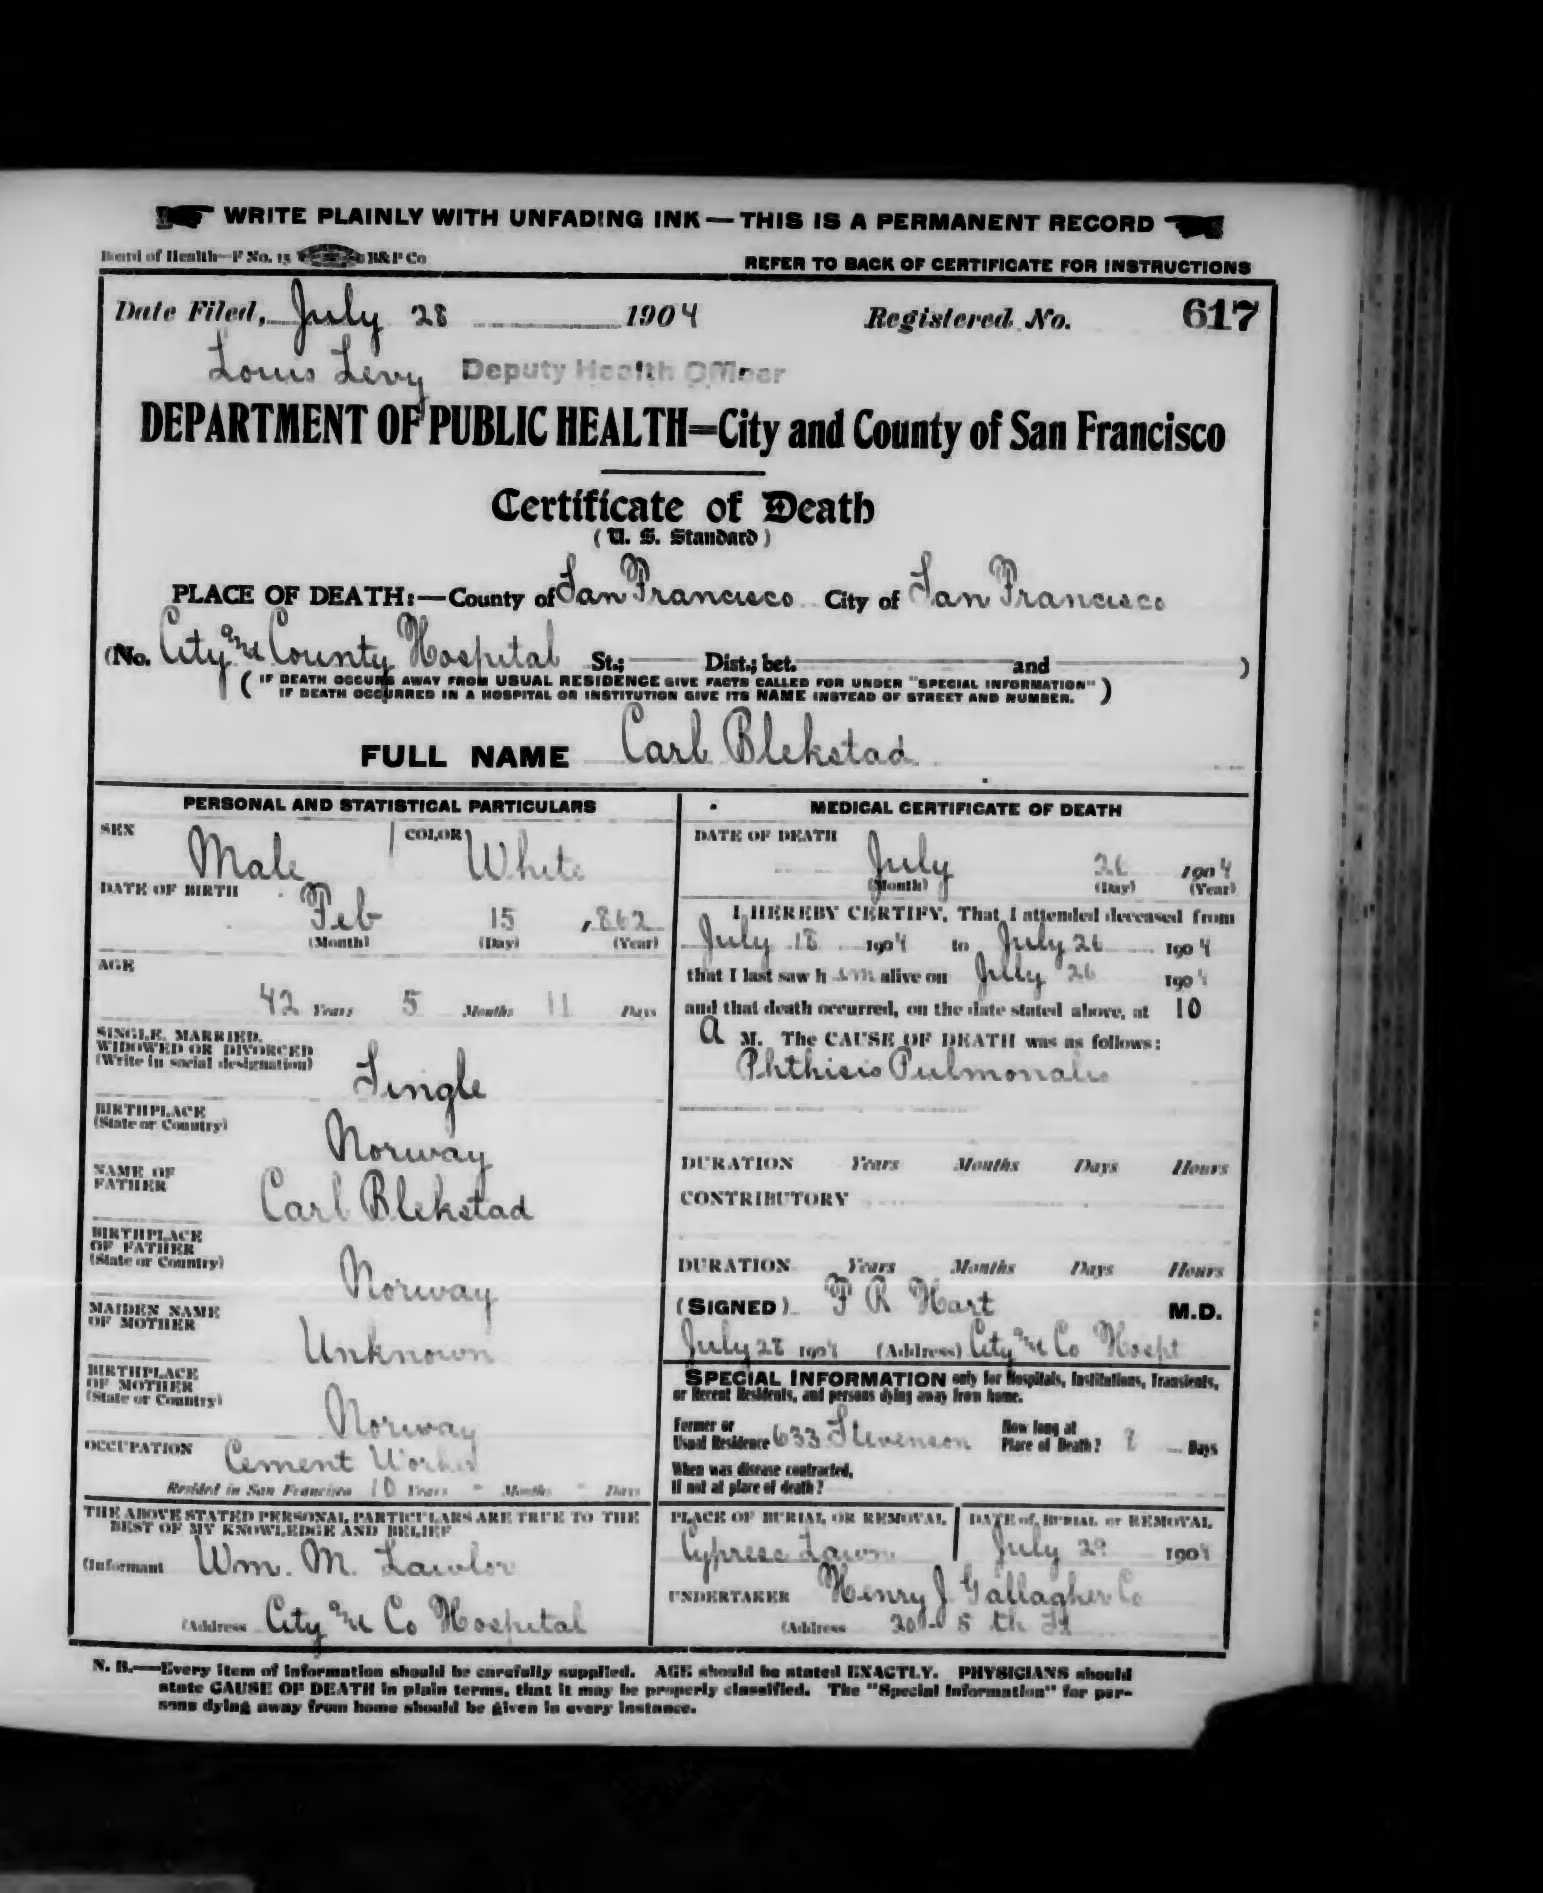 WRITE PLAINLY WITH UNFADING INK — THIS IS A PERMANENT RECORD
Board of Health—F No. 15 B&P Co
REFER TO BACK OF CERTIFICATE FOR INSTRUCTIONS
Date Filed, July 28 1904 Registered No. 617
Louis Levy Deputy Health Officer
DEPARTMENT OF PUBLIC HEALTH=City and County of San Francisco
Certificate of Death
(U. S. Standard)
PLACE OF DEATH:—County of San Francisco City of San Francisco
(No. City and County Hospital St.; Dist.; bet. and )
(IF DEATH OCCURS AWAY FROM USUAL RESIDENCE GIVE FACTS CALLED FOR UNDER "SPECIAL INFORMATION"
IF DEATH OCCURRED IN A HOSPITAL OR INSTITUTION GIVE ITS NAME INSTEAD OF STREET AND NUMBER.)
FULL NAME Carl Blekstad
PERSONAL AND STATISTICAL PARTICULARS
SEX Male COLOR White
DATE OF BIRTH
Feb 15 ,862
(Month) (Day) (Year)
AGE
42 Years 5 Months 11 Days
SINGLE, MARRIED,
WIDOWED OR DIVORCED
(Write in social designation)
Single
BIRTHPLACE
(State or Country)
Norway
NAME OF
FATHER
Carl Blekstad
BIRTHPLACE
OF FATHER
(State or Country)
Norway
MAIDEN NAME
OF MOTHER
Unknown
BIRTHPLACE
OF MOTHER
(State or Country)
Norway
OCCUPATION Cement Worker
Resided in San Francisco 10 Years - Months - Days
THE ABOVE STATED PERSONAL PARTICULARS ARE TRUE TO THE
BEST OF MY KNOWLEDGE AND BELIEF
(Informant Wm. M. Lawlor
(Address City and Co Hospital
MEDICAL CERTIFICATE OF DEATH
DATE OF DEATH
July 26 1904
(Month) (Day) (Year)
I HEREBY CERTIFY, That I attended deceased from
July 18 1904 to July 26 1904
that I last saw h im alive on July 26 1904
and that death occurred, on the date stated above, at 10
A M. The CAUSE OF DEATH was as follows:
Phthisis Pulmonalis
DURATION Years Months Days Hours
CONTRIBUTORY
DURATION Years Months Days Hours
(SIGNED) F R Hart M.D.
July 28 1904 (Address) City and Co Hospt
SPECIAL INFORMATION only for Hospitals, Institutions, Transients,
or Recent Residents, and persons dying away from home.
Former or
Usual Residence 633 Stevenson
How long at
Place of Death? 8 Days
When was disease contracted,
If not at place of death?
PLACE OF BURIAL OR REMOVAL
Cypress Lawn
DATE of BURIAL or REMOVAL
July 29 1904
UNDERTAKER Henry J. Gallagher Co
(Address 20 5th St
N. B.—Every item of information should be carefully supplied. AGE should be stated EXACTLY. PHYSICIANS should
state CAUSE OF DEATH in plain terms, that it may be properly classified. The "Special Information" for per-
sons dying away from home should be given in every instance.